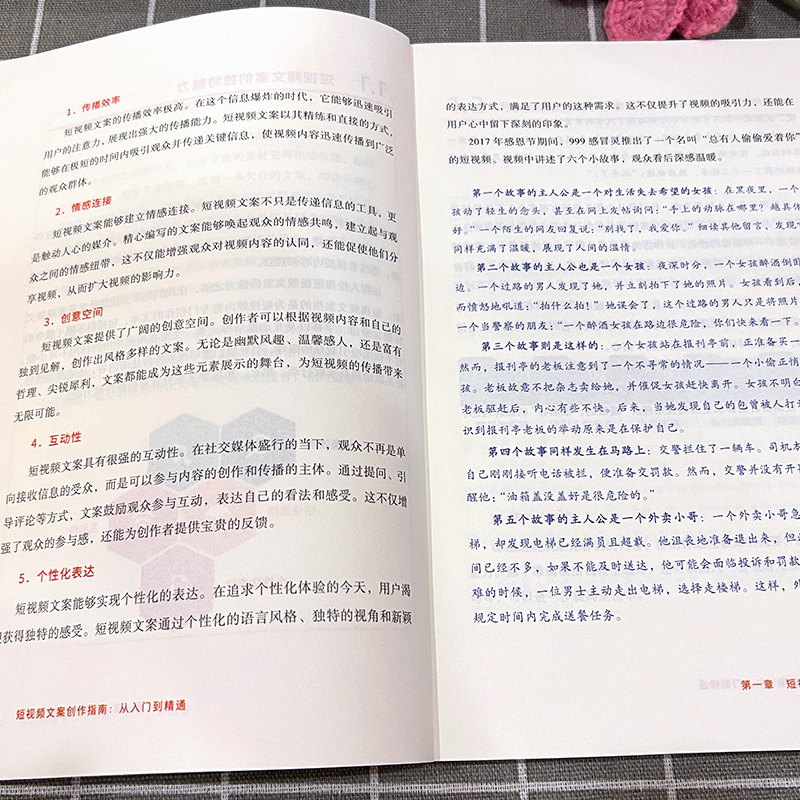 1. 传播效率
短视频文案的传播效率极高。在这个信息爆炸的时代，它能够迅速吸引
用户的注意力，展现出强大的传播能力。短视频文案以其精练和直接的方式，
能够在极短的时间内吸引观众并传递关键信息，使视频内容迅速传播到广泛
的观众群体。
2. 情感连接
短视频文案能够建立情感连接。短视频文案不只是传递信息的工具，更
是触动人心的媒介。精心编写的文案能够唤起观众的情感共鸣，建立起与观
众之间的情感纽带，这不仅能增强观众对视频内容的认同，还能促使他们分
享视频，从而扩大视频的影响力。
3. 创意空间
短视频文案提供了广阔的创意空间。创作者可以根据视频内容和自己的
独到见解，创作出风格多样的文案。无论是幽默风趣、温馨感人，还是富有
哲理、尖锐犀利，文案都能成为这些元素展示的舞台，为短视频的传播带来
无限可能。
4. 互动性
短视频文案具有很强的互动性。在社交媒体盛行的当下，观众不再是单
向接收信息的受众，而是可以参与内容的创作和传播的主体。通过提问、引
导评论等方式，文案鼓励观众参与互动，表达自己的看法和感受。这不仅增
强了观众的参与感，还能为创作者提供宝贵的反馈。
5. 个性化表达
短视频文案能够实现个性化的表达。在追求个性化体验的今天，用户渴
望获得独特的感受。短视频文案通过个性化的语言风格、独特的视角和新颖
短视频文案创作指南：从入门到精通
的表达方式，满足了用户的这种需求。这不仅提升了视频的吸引力，还能在
用户心中留下深刻的印象。
2017 年感恩节期间，999 感冒灵推出了一个名叫“总有人偷偷爱着你”
的短视频。视频中讲述了六个小故事，观众看后深感温暖。
第一个故事的主人公是一个对生活失去希望的女孩：在黑夜里，一个
孩动了轻生的念头，甚至在网上发帖询问：“手上的动脉在哪里？越具体
好。”一个陌生的网友回复说：“别找了，我爱你。”细读其他留言，发现
同样充满了温暖，展现了人间的温情。
第二个故事的主人公也是一个女孩：夜深时分，一个女孩醉酒倒
边。一个过路的男人发现了她，并立刻拍下了她的照片。女孩看到后，
而愤怒地吼道：“拍什么拍！”她误会了，这个过路的男人只是将照片
一个当警察的朋友：“一个醉酒女孩在路边很危险，你们快来看一下。
第三个故事则是这样的：一个女孩站在报刊亭前，正准备买一
然而，报刊亭的老板注意到了一个不寻常的情况——一个小偷正悄
孩。老板故意不把杂志卖给她，并催促女孩赶快离开。女孩不明白
老板驱赶后，内心有些不快。后来，当她发现自己的包曾被人打开
识到报刊亭老板的举动原来是在保护自己。
第四个故事同样发生在马路上：交警拦住了一辆车。司机本
自己刚刚接听电话被拦，便准备交罚款。然而，交警并没有开
醒他：“油箱盖没盖好是很危险的。”
第五个故事的主人公是一个外卖小哥：一个外卖小哥急
梯，却发现电梯已经满员且超载。他沮丧地准备退出来，但
间已经不多，如果不能及时送达，他可能会面临投诉和罚款
难的时候，一位男士主动走出电梯，选择走楼梯。这样，外
规定时间内完成送餐任务。
第一章 短